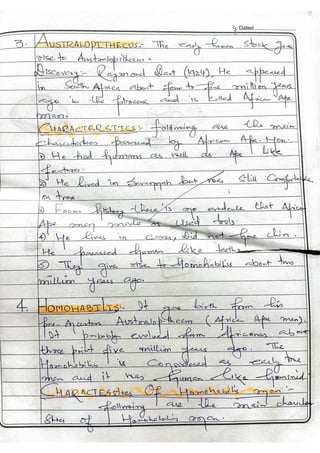 Dated
3. AUSTRALOPITHECUS:- The early human stock gave
rise to Australopithecus.
Discovery:- Raymond Dart (1924). He appeared
in South Africa about four to five million years
ago in the pliocene and is called African Ape
man.
CHARACTERSTICS:- following are the main
Characteristics possessed by African Ape-Man.
1) He had humans as well as Ape like
features.
2) He lived in but was still Comfortable
on trees.
3) From history there is no evidence that African
Ape man made or used tools.
4) He lives in caves, did not have chin.
He possessed human like teeth.
5) They give rise to Homohabilis about two
million years ago.
4. HOMOHABILIS:- It gave birth from his
fore Ancestors Australopithecus (Africa Ape man).
It probably evolved from Africanus about
three point five million years ago. The
Homohabilis is Considered as early true
man and it was Human like hominid
CHARACTEASTICS OF Homohabilis man:-
following are the main character
of Homohabilis man.